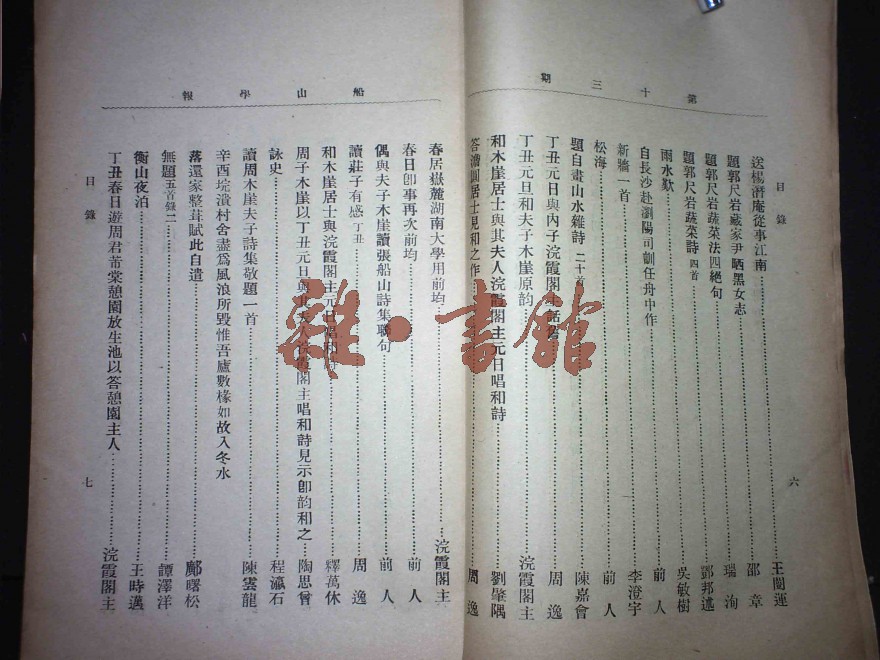 第十三期
目錄
送楊潛庵從事江南 王闓運
題郭尺岩藏家尹晒黑女志 邵章
題郭尺岩蔬菜法四絕句 瑞洵
題郭尺岩蔬菜詩 四首 鄧邦述
雨水歎 吳敏樹
自長沙赴瀏陽司訓任舟中作 前人
新牆一首 李澄宇
松海 前人
題自畫山水雜詩 二十首 陳嘉會
丁丑元日與內子浣霞閣主話舊 周逸
丁丑元旦和夫子木崖原韵 浣霞閣主
和木崖居士與其夫人浣霞閣主元日唱和詩 劉肇隅
答澹園居士見和之作 周逸
六
船山學報
春居嶽麓湖南大學用前均 浣霞閣主
春日卽事再次前均 前人
偶與夫子木崖讀張船山詩集聯句 前人
讀莊子有感 丁丑 周逸
和木崖居士與浣霞閣主元日唱和 釋萬休
周子木崖以丁丑元日與其夫人浣霞閣主唱和詩見示卽韵和之 陶思曾
詠史 程瀛石
讀周木崖夫子詩集敬題一首 陳雲龍
辛酉垸潰村舍盡爲風浪所毀惟吾廬數椽如故入冬水
落還家整葺賦此自遣 鄺曙松
無題 五首錄二 譚澤洋
衡山夜泊 王時邁
丁丑春日遊周君芾棠憩園放生池以答憩園主人 浣霞閣主
目錄
七
雜·書館